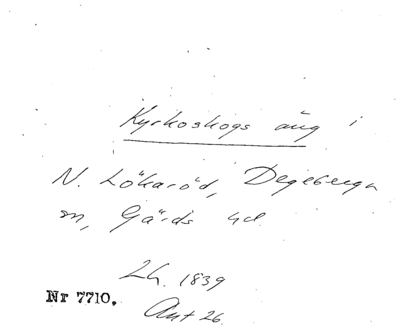 Kyrkoskogs äng i
N. Lökaröd, Degeberga
sn, Gärds hd.
Lh. 1839
Nr 7710.
Akt 26.